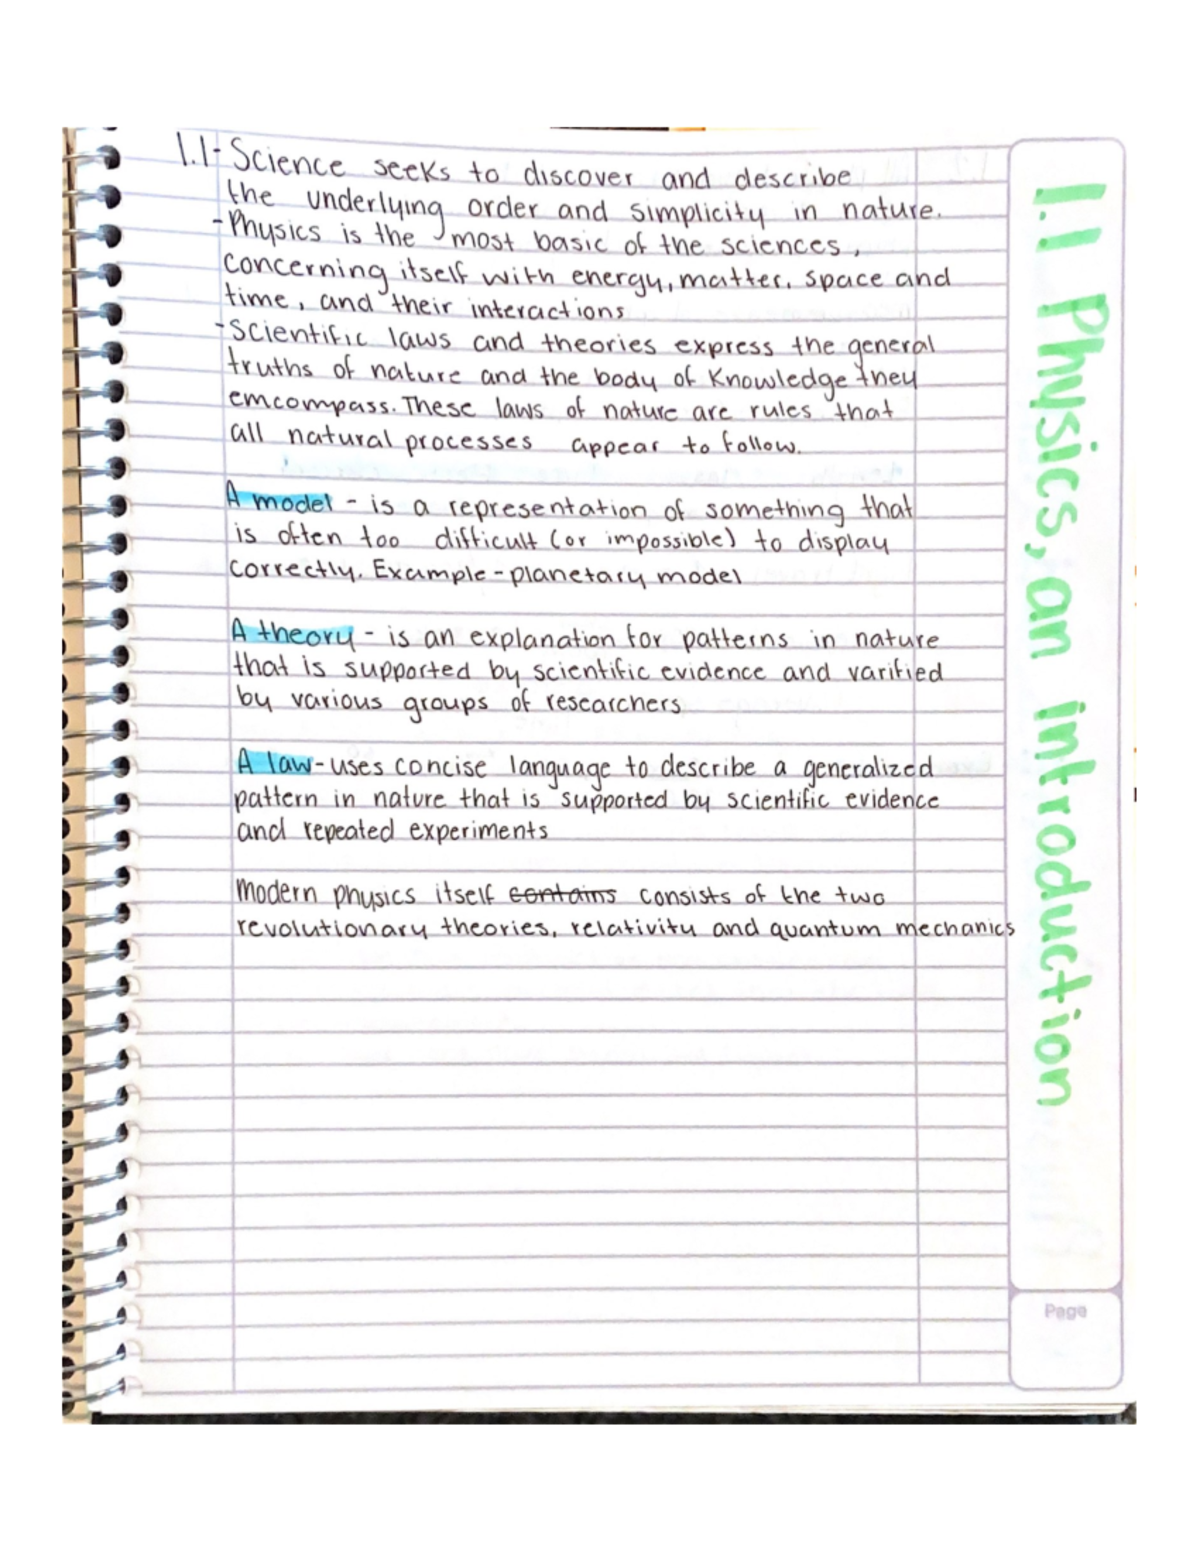 1.1- Science seeks to discover and describe
the underlying order and simplicity in nature.
-Physics is the most basic of the sciences,
concerning itself with energy, matter, space and
time, and their interactions
-Scientific laws and theories express the general
truths of nature and the body of Knowledge they
emcompass. These laws of nature are rules that
all natural processes appear to follow.
A model - is a representation of something that
is often too difficult (or impossible) to display
correctly. Example - planetary model
A theory - is an explanation for patterns in nature
that is supported by scientific evidence and varified
by various groups of researchers
A law - uses concise language to describe a generalized
pattern in nature that is supported by scientific evidence
and repeated experiments
Modern physics itself contains consists of the two
revolutionary theories, relativity and quantum mechanics
1.1 Physics, an introduction
Page